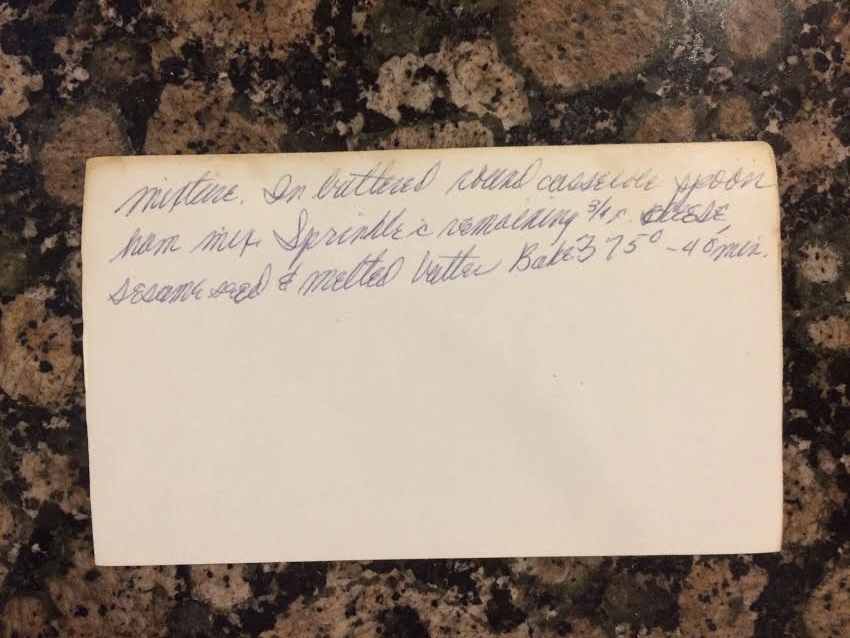 mixture. In buttered round casserole spoon
ham mix. Sprinkle c remaining 3/4 c. cheese
sesame seed & melted butter Bake 375° - 40 min.